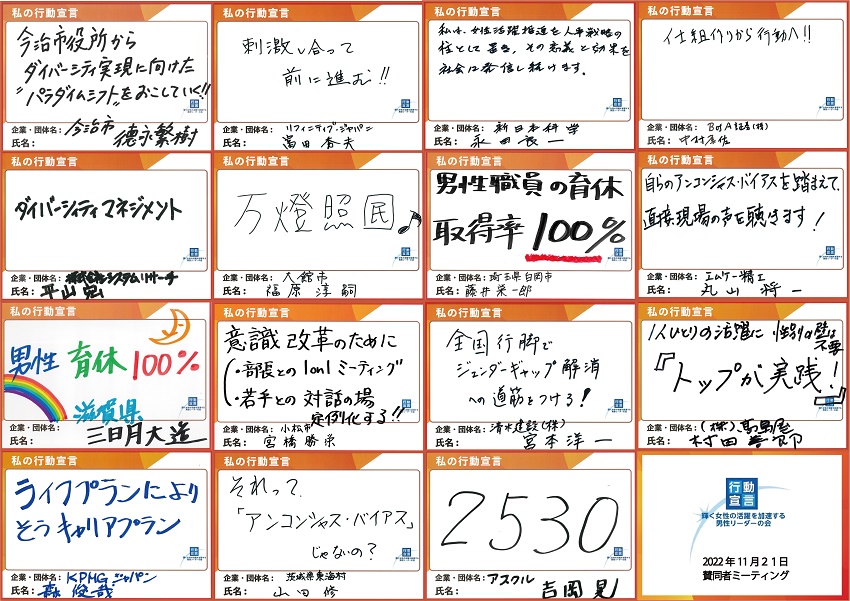 私の行動宣言
今治市役所から
ダイバーシティ実現に向けた
"パラダイムシフト"をおこしていく!!
企業・団体名: 今治市
氏名: 徳永繁樹
私の行動宣言
刺激し合って
前に進む!!
企業・団体名: リフィニティブ・ジャパン
氏名: 富田秀夫
私の行動宣言
私は、女性活躍推進を人事戦略の
柱として置き、その意義と効果を
社会に発信し続けます。
企業・団体名: 新日本科学
氏名: 永田良一
私の行動宣言
仕組作りから行動へ!!
企業・団体名: BofA証券(株)
氏名:
私の行動宣言
ダイバーシティマネジメント
企業・団体名: 株式会社システムリサーチ
氏名: 平山宏
私の行動宣言
万燈照国♪
企業・団体名: 八館市
氏名: 福原淳嗣
私の行動宣言
男性職員の育休
取得率 100%
企業・団体名: 埼玉県白岡市
氏名: 藤井栄一郎
私の行動宣言
自らのアンコンシャス・バイアスを踏まえて、
直接現場の声を聴きます!
企業・団体名: エムケー精工
氏名: 丸山将一
私の行動宣言
男性 育休 100%
滋賀県
企業・団体名:
氏名: 三日月大造
私の行動宣言
意識改革のために
・部長との1on1ミーティング
・若手との対話の場
定例化する!!
企業・団体名: 小松市
氏名: 宮橋勝栄
私の行動宣言
全国行脚で
ジェンダーギャップ解消
への道筋をつける!
企業・団体名: 清水建設(株)
氏名: 宮本洋一
私の行動宣言
1人ひとりの活躍に 性別の壁は
不要
『トップが実践!』
企業・団体名: (株)髙島屋
氏名: 村田善郎
私の行動宣言
ライフプランにより
そうキャリアプラン
企業・団体名: KPMGジャパン
氏名: 森俊哉
私の行動宣言
それって、
「アンコンシャス・バイアス」
じゃないの?
企業・団体名: 茨城県東海村
氏名: 山田修
私の行動宣言
2530
企業・団体名: アスクル
氏名: 吉岡晃
行動
宣言
輝く女性の活躍を加速する
男性リーダーの会
2022年11月21日
賛同者ミーティング